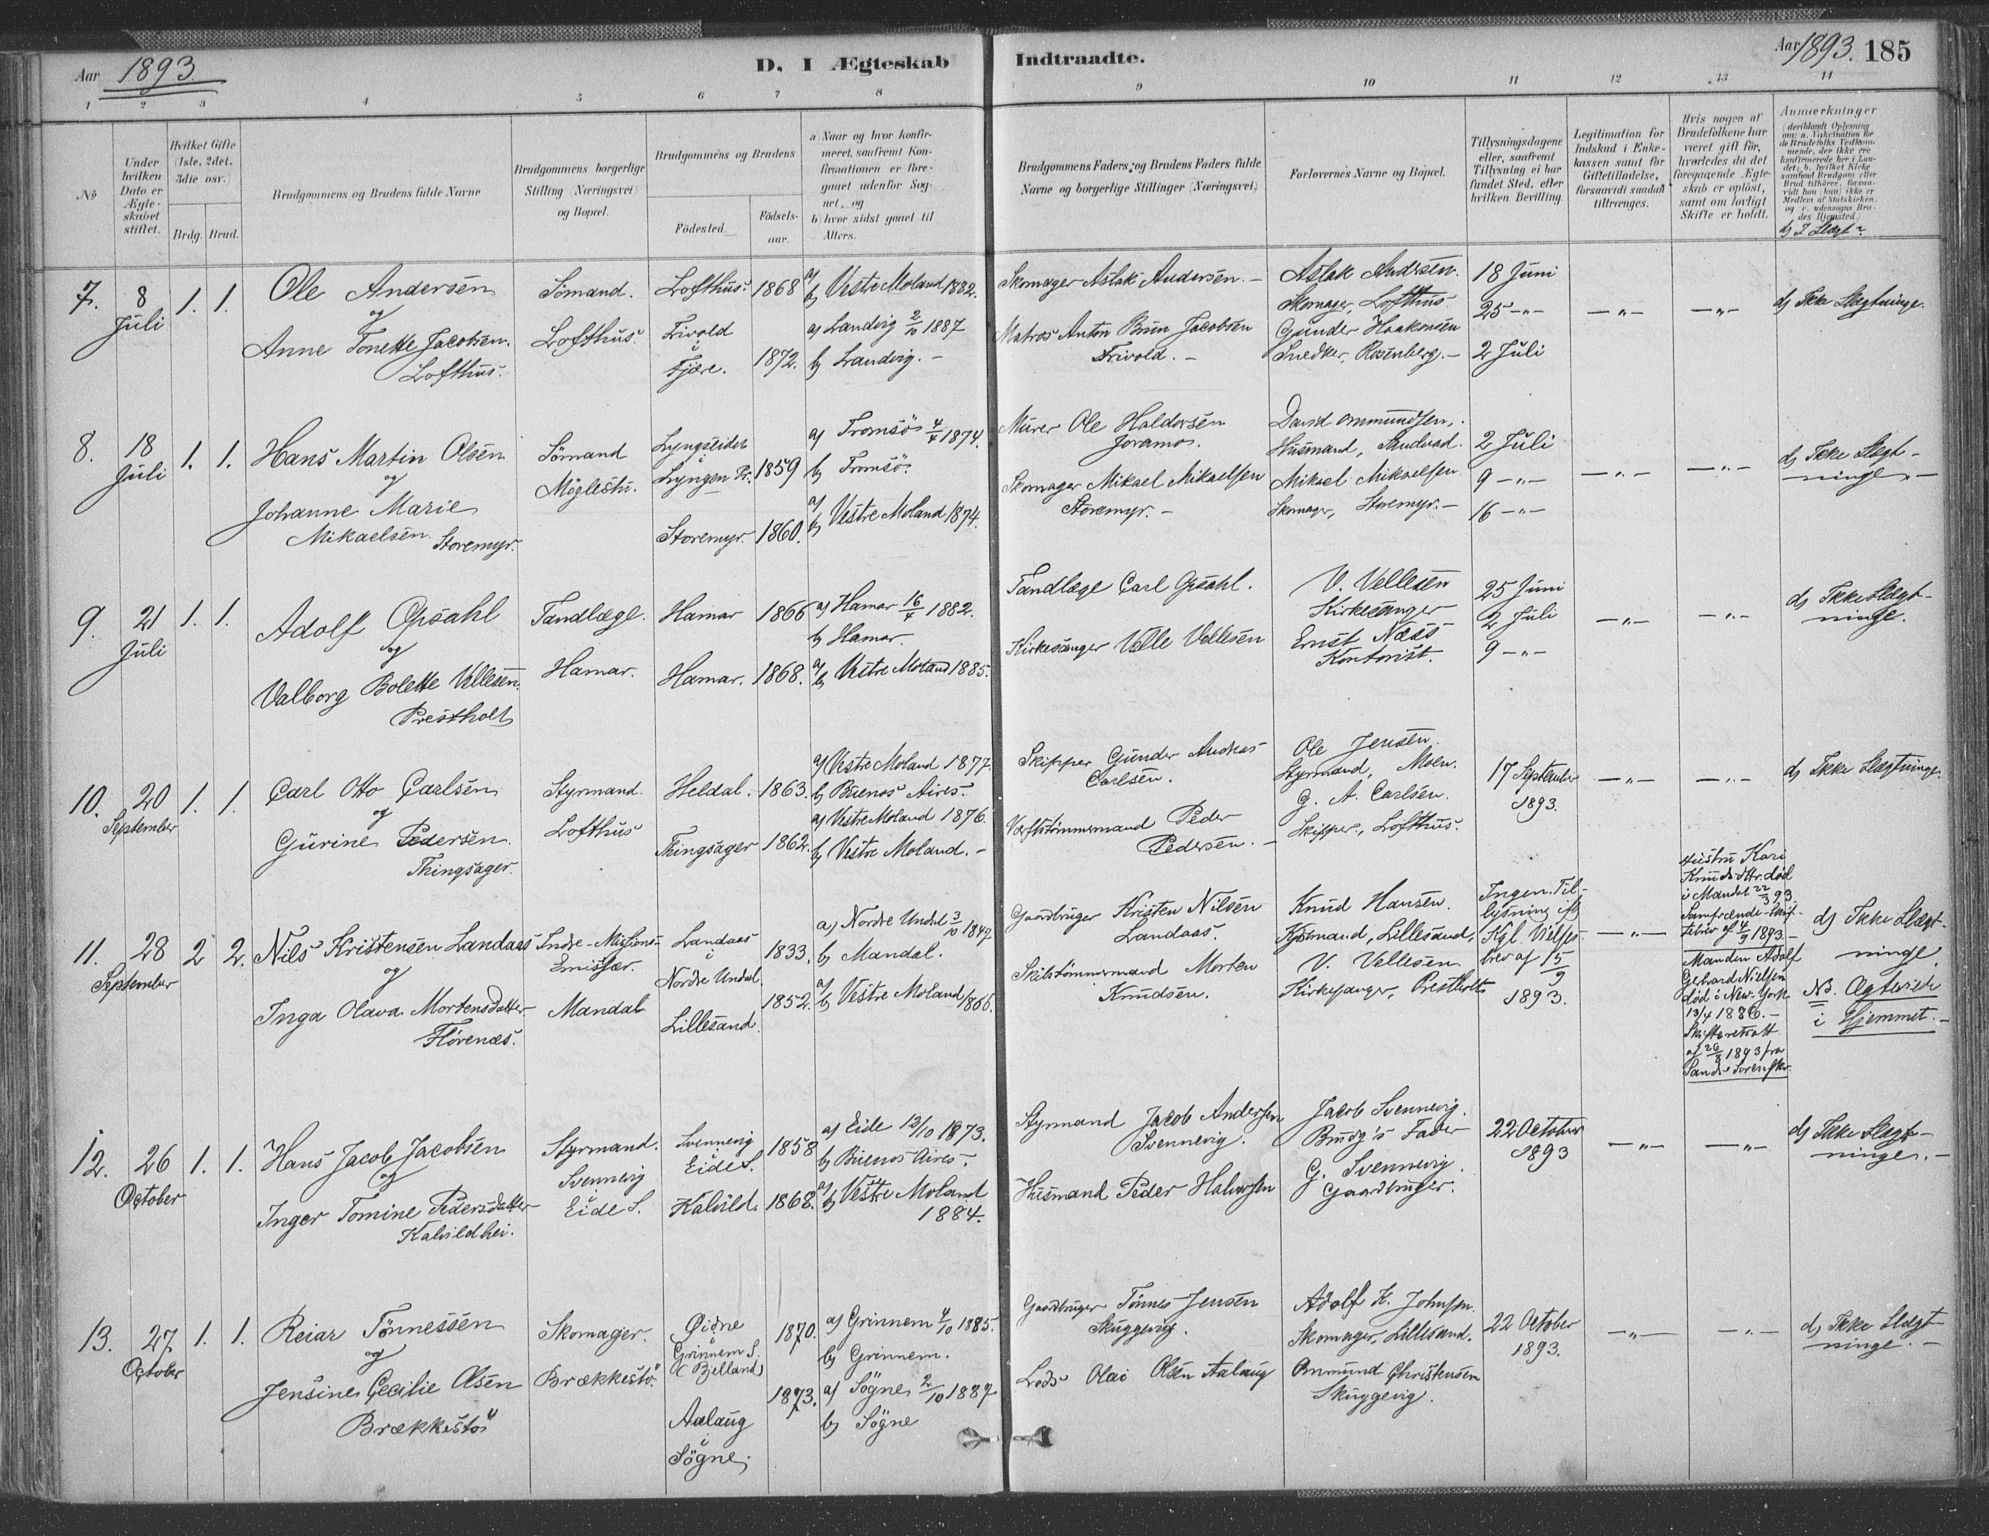 Aar 1893.
D. I Ægteskab Indtraadte.
Aar 1893. 185
1 2 3 4 5 6 7 8 9 10 11 12 13 14
No
Under hvilken Dato er Ægteskabet stiftet.
Hvilket Gifte (1ste, 2det, 3die osv.)
Brdg. Brud.
Brudgommens og Brudens fulde Navne
Brudgommens borgerlige Stilling (Næringsvei) og Bopæl.
Brudgommens og Brudens
Födested. Födselsaar.
a) Naar og hvor konfirmeret, saafremt Konfirmationen er foregaaet udenfor Sognet, og
b) hvor sidst gaaet til Alters.
Brudgommens Faders og Brudens Faders fulde Navne og borgerlige Stillinger (Næringsvei)
Forlovernes Navne og Bopæl.
Tillysningsdagene eller, saafremt Tillysning ei har fundet Sted, efter hvilken Bevilling.
Legitimation for Indskud i Enkekassen samt for Giftetilladelse, forsaavidt saadan tiltrænges.
Hvis nogen af Brudefolkene har været gift för, hvorledes da det foregaaende Ægteskab er oplöst, samt om lovligt Skifte er holdt.
Anmerkninger (deriblandt Oplysning om: a. Vakcination for de Brudefolks Vedkommende, der ikke ere konfirmerede her i Landet; b. hvilket Kirkesamfund Brudgom eller Brud tilhörer, forsaavidt han (hun) ikke er Medlem af Statskirken, og c. udensogns Brudes Hjemsted.)
7. 8 Juli 1. 1.
Ole Andersen
og
Anne Tonette Jacobsen.
Lofthus.
Sömand.
Lofthus.
Lofthus. 1868
Frivold
i
Fjære. 1872.
a) b) Vestre Moland 1882.
a) Landvig 2/10 1887
b) Landvig. -
Skomager Aslak Andersen. -
Matros Anton Bruun Jacobsen
Frivold. -
Aslak Andersen.
Skomager, Lofthus
Gunder Haakonsen
Snedker, Rosenberg. -
18 Juni
25 -"-
2 Juli
-"- -"-
d) Ikke Slægtninge.
8. 18 Juli 1. 1.
Hans Martin Olsen
og
Johanne Marie
Mikaelsen. Storemyr.
Sömand
Möglestu.
Lyngseidet
i
Lyngen Pr. 1859
Storemyr. 1860.
a) Tromsö 4/4 1874.
b) Tromsö.
a) b) Vestre Moland 1874.
Murer Ole Haldorsen
Joramo.
Skomager Mikael Mikaelsen
Storemyr. -
David Ommundsen,
Husmand, Sandvad.
Mikael Mikaelsen.
Skomager, Storemyr. -
2 Juli
9 -"-
16 -"-
-"- -"-
d) Ikke Slægtninge. -
9. 21 Juli 1. 1.
Adolf Opsahl
og
Valborg Bolette Vellesen.
Prestholt
Tandlæge.
Hamar.
Hamar 1866
Hamar. 1868.
a) Hamar 16/4 1882.
b) Hamar.
a) b) Vestre Moland 1885.
Tandlæge Carl Opsahl.
Kirkesanger Velle Vellesen
V. Vellesen
Kirkesanger
Ernst Næss
Kontorist.
25 Juni
2 Juli
9 -"-
-"- -"-
d) Ikke Slægtninge.
10. 20 September 1. 1.
Carl Otto Carlsen
og
Gurine Pedersen.
Thingsager.
Styrmand
Lofthus
Heldal. 1863.
Thingsager 1862.
a) Vestre Moland 1877.
b) Buenos Aires.
a) Vestre Moland 1876.
b) Vestre Moland. -
Skipper Gunder Andreas
Carlsen.
Værftstömmermand Peder
Pedersen. -
Ole Jensen.
Styrmand, Moen.
G. A. Carlsen.
Skipper, Lofthus.
17 September
1893.
-"- -"-
d) Ikke Slægtninge.
11. 28 September 2 2.
Nils Kristensen Landaas
og
Inga Olava Mortensdatter
Flørenæs.
Indre-Missions-
Emissær.
Mandal
Landaas
i
Nordre Undal. 1833.
Lillesand. 1852.
a) Nordre Undal 3/10 1847
b) Mandal.
a) b) Vestre Moland 1866.
Gaardbruger Kristen Nilsen
Landaas.
Skibstömmermand Morten
Knudsen.
Knud Hansen.
Kjöbmand, Lillesand,
V. Vellesen.
Kirkesanger, Prestholt
Ingen Til-
lysning ifl.
Kgl. Vielses-
brev af 15/9
1893.
-"-
Hustru Kari
Knudsdtr. död
i Mandal 22/3 93
Samfrænde-Skif-
tebrev af 4/9 1893. -
Manden Adolf
Gerhard Nielsen
död i New-York
13/4 1886. -
Skifteretsatt.
af 26/8 1893 fra
Sand's Sorenskr.
d) Ikke Slægtninge.
NB. Ægteviede
i Hjemmet. -
12. 26 October 1. 1.
Hans Jacob Jacobsen
og
Inger Tomine Pedersdatter
Kalvildhei.
Styrmand.
Svennevig
i
Eide S.
Svennevig
i
Eide S. 1858
Kalvild. 1868.
a) Eide 12/10 1873.
b) Buenos Aires.
a) b) Vestre Moland
1884.
Styrmand Jacob Andersen
Svennevig.
Husmand Peder Halvorsen
Jacob Svennevig.
Brudg's Fader
G. Svennevig.
Gaardbruger.
22 October
1893
-"- -"-
d) Ikke Slægtninge. -
13. 27 October 1. 1.
Reiar Tönnessen
og
Jensine Cecilie Olsen
Brækkestö
Skomager.
Brækkestö.
Øidne
i
Grinnem S.
(Bjelland) 1870.
Aalaug
i
Søgne. 1873.
a) Grinnem 4/10 1885.
b) Grinnem.
a) Søgne 2/10 1887
b) Søgne
Gaardbruger Tönnes Jensen
Skuggevig.
Lods Olai Olsen Aalaug
Adolf K. Johnsen.
Skomager, Lillesand.
Ommund Christensen
Skuggevig.
22 October
1893.
-"- -"-
d) Ikke Slægtninge. -